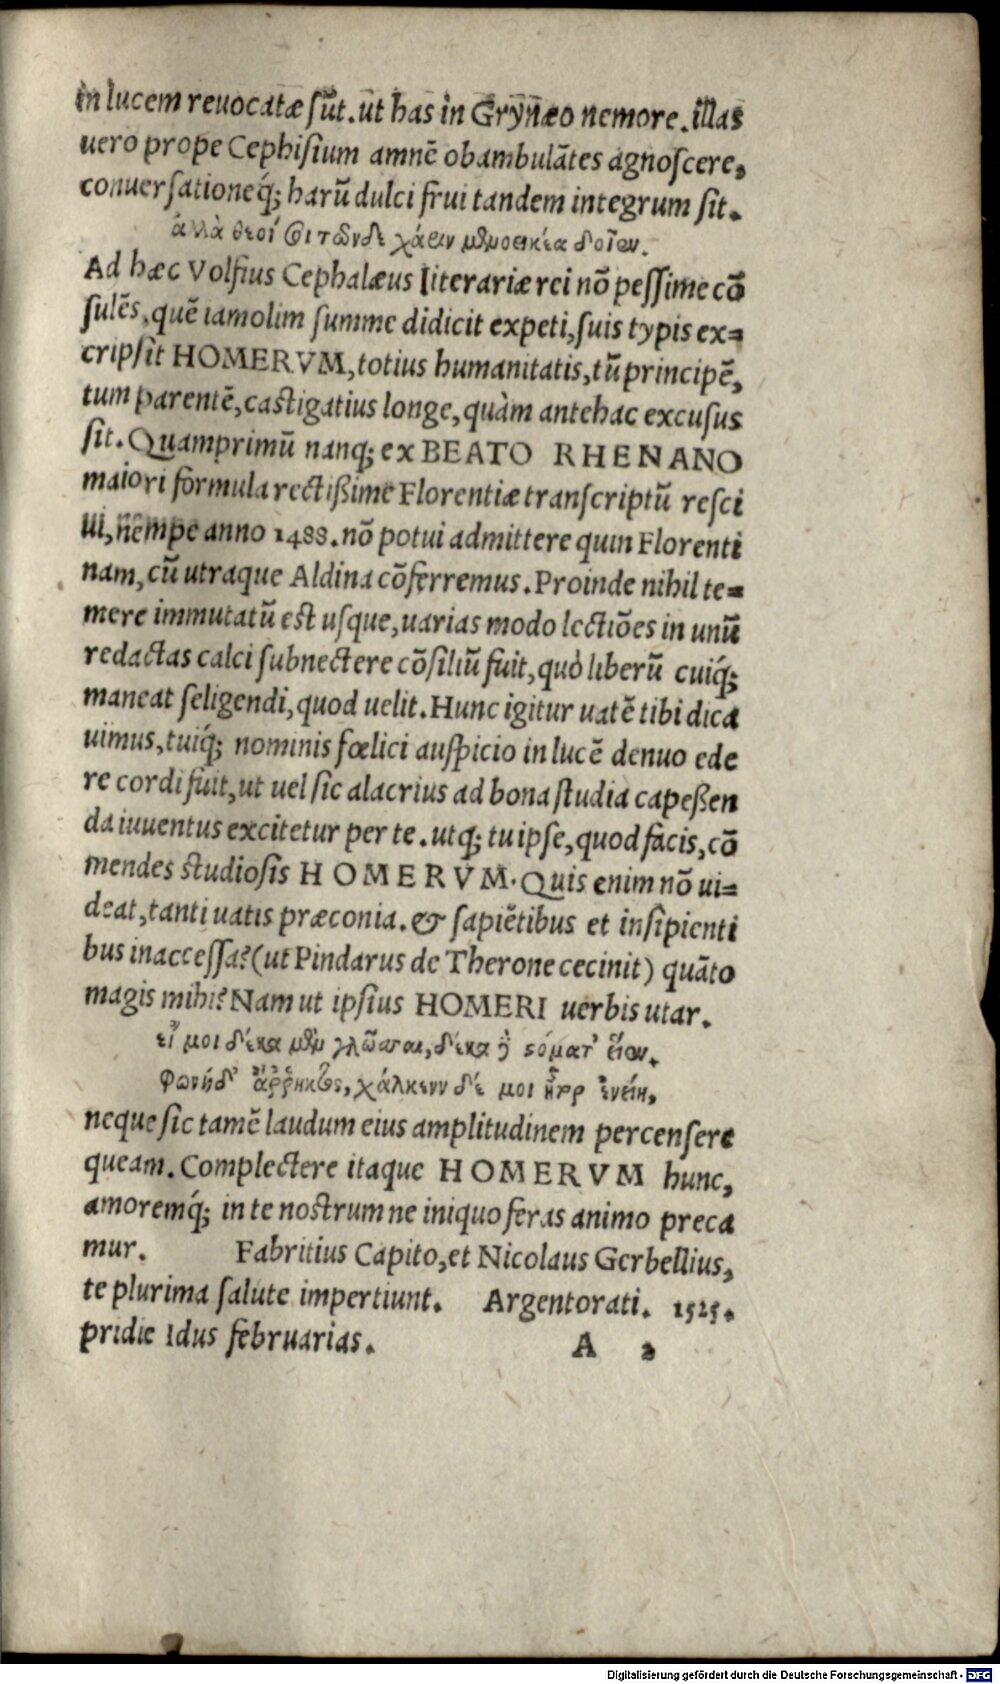 in lucem reuocatæ sũt. ut has in Grynæo nemore. illas
uero prope Cephisium amnẽ obambulãtes agnoscere,
conuersationeq́; harũ dulci frui tandem integrum sit.
ἀλλὰ θεοί σοι τῶνδε χάριν μενοεικέα δοῖεν.
Ad hæc Volfius Cephalæus literariæ rei nõ pessime cõ
sulẽs, quẽ iamolim summe didicit expeti, suis typis ex=
cripsit HOMERVM, totius humanitatis, tũ principẽ,
tum parentẽ, castigatius longe, quàm antehac excusus
sit. Quamprimũ nanq; ex BEATO RHENANO
maiori formula rectißime Florentiæ transcriptũ resci
ui, nempe anno 1488. nõ potui admittere quin Florenti
nam, cũ utraque Aldina cõferremus. Proinde nihil te=
mere immutatũ est usque, uarias modo lectiões in unũ
redactas calci subnectere cõsiliũ fuit, quò liberũ cuiq́;
maneat seligendi, quod uelit. Hunc igitur uatẽ tibi dica
uimus, tuiq́; nominis fœlici auspicio in lucẽ denuo ede
re cordi fuit, ut uel sic alacrius ad bona studia capeßen
da iuuentus excitetur per te. utq; tu ipse, quod facis, cõ
mendes studiosis HOMERVM. Quis enim nõ ui=
deat, tanti uatis præconia. & sapiẽtibus et insipienti
bus inaccessa? (ut Pindarus de Therone cecinit) quãto
magis mihi? Nam ut ipsius HOMERI uerbis utar.
εἴ μοι δέκα μὲν γλῶσσαι, δέκα δὲ στόματ' εἶεν.
Φωνὴ δ' ἄῤῥηκτος, χάλκεον δέ μοι ἦτορ ἐνείη,
neque sic tamẽ laudum eius amplitudinem percensere
queam. Complectere itaque HOMERVM hunc,
amoremq́; in te nostrum ne iniquo feras animo preca
mur. Fabritius Capito, et Nicolaus Gerbellius,
te plurima salute impertiunt. Argentorati. 1525.
pridie Idus februarias. A 2
Digitalisierung gefördert durch die Deutsche Forschungsgemeinschaft - DFG